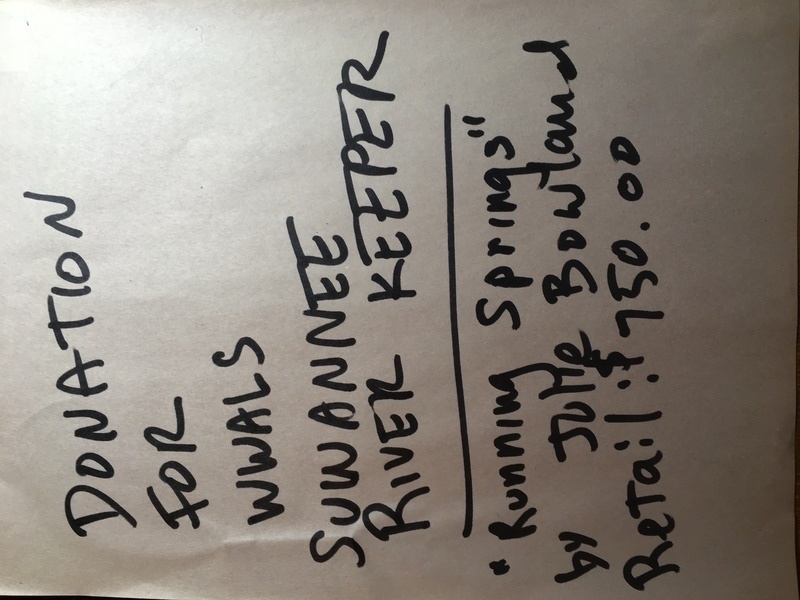 DONATION
FOR
WWALS
SUWANNEE
RIVER KEEPER
"Running Springs"
by Julie Bowland
Retail: $750.00